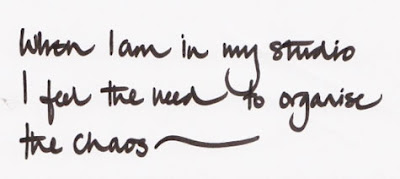 When I am in my studio
I feel the need to organise
the chaos